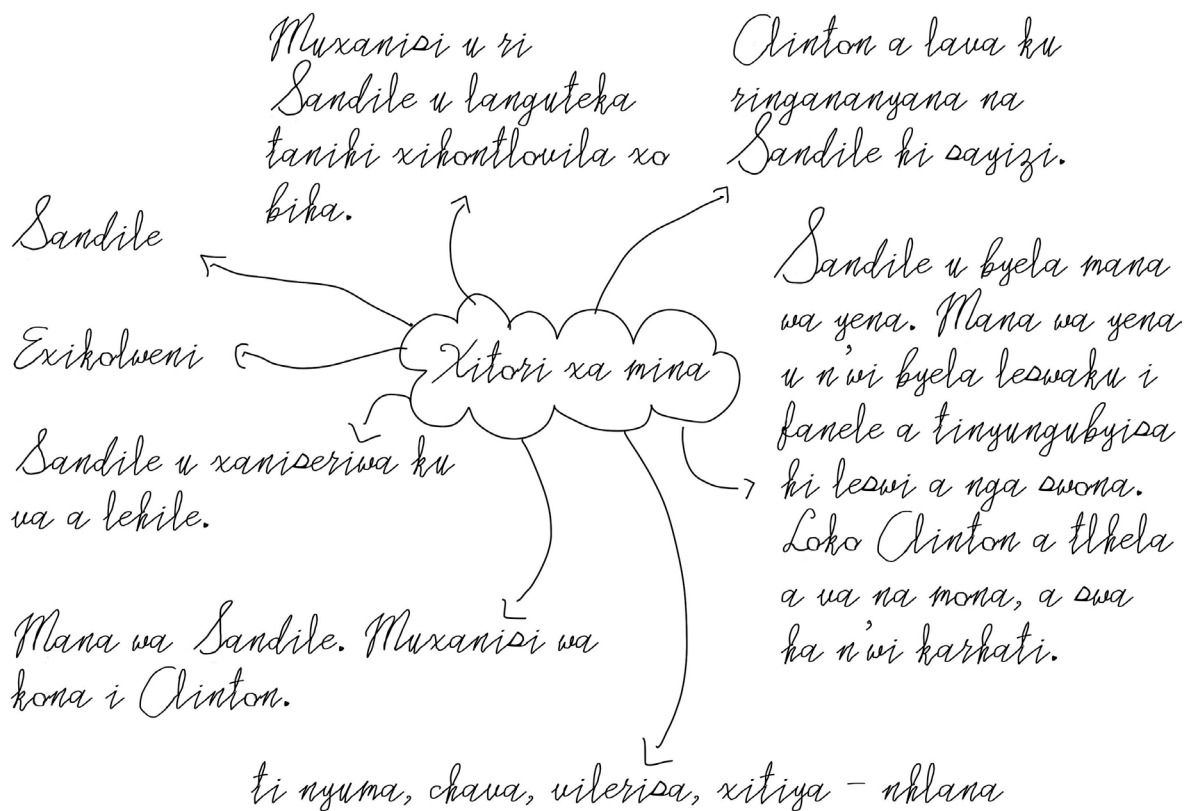 Muxanisi u ri
Sandile u languteka
tanihi xihontlovila xo
biha.
Clinton a lava ku
ringananyana na
Sandile hi sayizi.
Sandile
Exikolweni
Xitori xa mina
Sandile u byela mana
wa yena. Mana wa yena
u n'wi byela leswaku i
fanele a tinyungubyisa
hi leswi a nga swona.
Loko Clinton a tlhela
a va na mona, a swa
ha n'wi karhati.
Sandile u xaniseriwa ku
va a lehile.
Mana wa Sandile. Muxanisi wa
kona i Clinton.
ti nyuma, chava, vilerisa, xitiya – nhlana